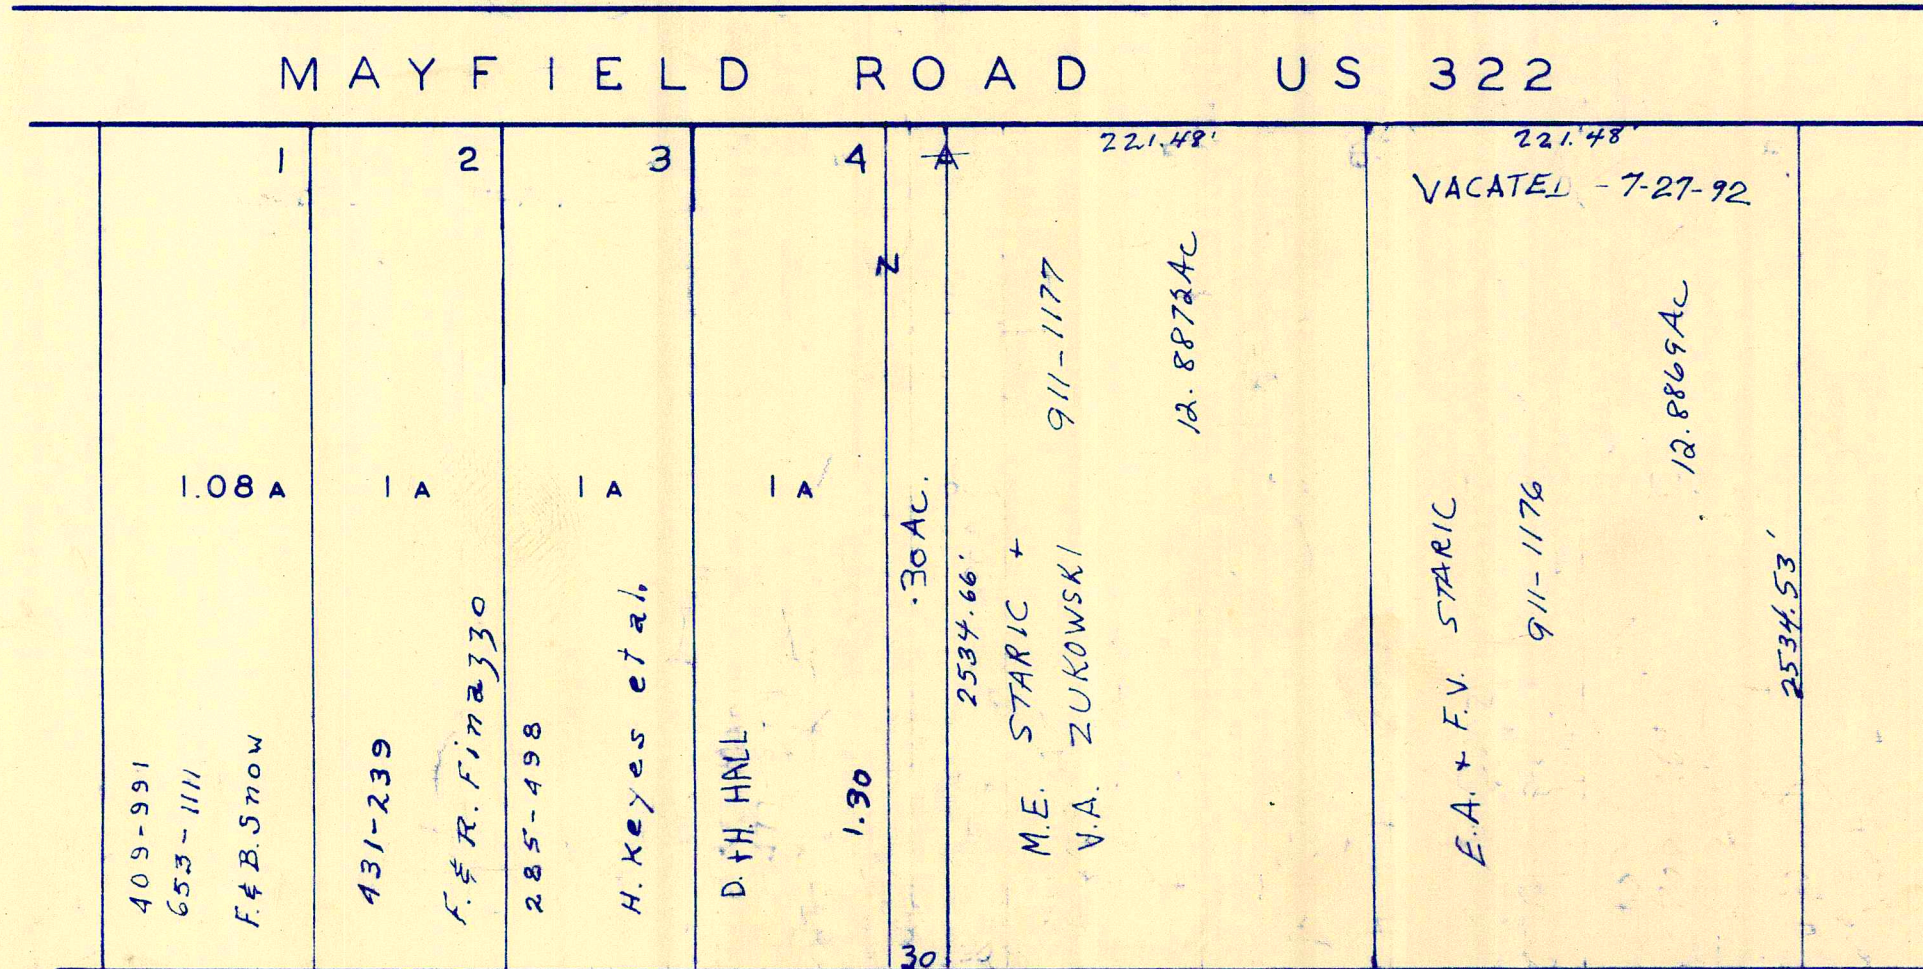 MAYFIELD ROAD US 322
1
1.08 A
409-991
653-1111
F. & B. Snow
2
1 A
431-239
F. & R. Finazzo
3
1 A
285-498
H. Keyes et al.
4
1 A
D. + H. HALL
1.30
Z
A
.30 Ac.
30
221.48'
2534.66'
M.E. STARIC +
V.A. ZUKOWSKI
911-1177
12.8872 Ac
221.48'
VACATED - 7-27-92
E.A. + F.V. STARIC
911-1176
12.8869 Ac
2534.53'